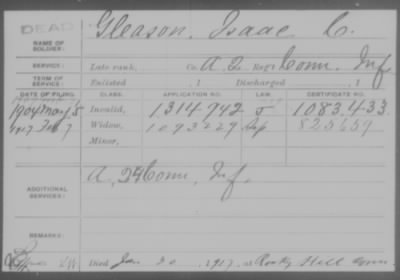 DEAD
NAME OF SOLDIER: Gleason, Isaac C.
SERVICE: Late rank, Co. A, 2 Reg't Conn. Inf
TERM OF SERVICE: Enlisted , 1 Discharged , 1
DATE OF FILING. CLASS. APPLICATION NO. LAW. CERTIFICATE NO.
1904 May 5 Invalid, 1314942 1083.433
1917 Feb 7 Widow, 825659
Minor,
ADDITIONAL SERVICES: A. 24 Conn. Inf.
REMARKS:
Died Jan 20, 1917, at Rocky Hill Conn.